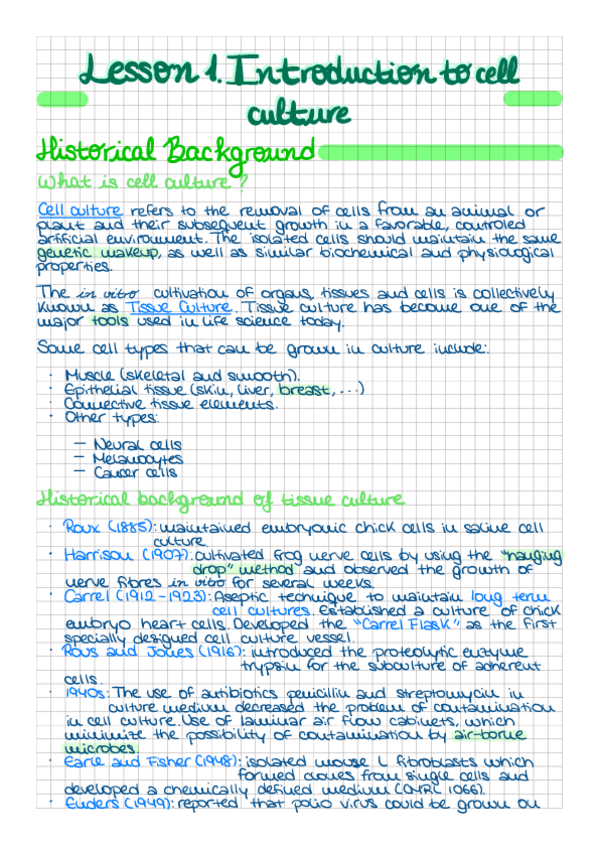 Lesson 1. Introduction to cell
culture
Historical Background
What is cell culture?
Cell culture refers to the removal of cells from an animal or
plant and their subsequent growth in a favorable, controled
artificial environment. The isolated cells should maintain the same
genetic makeup, as well as similar biochemical and physiological
properties.
The in vitro cultivation of organs, tissues and cells is collectively
known as Tissue Culture. Tissue culture has become one of the
major tools used in life science today.
Some cell types that can be grown in culture include:
· Muscle (skeletal and smooth).
· Epithelial tissue (skin, liver, breast, ...)
· Connective tissue elements.
· Other types:
— Neural cells
— Melanocytes
— Cancer cells
Historical background of tissue culture
· Roux (1885): maintained embryonic chick cells in saline cell
culture.
· Harrison (1907): cultivated frog nerve cells by using the "hanging
drop" method and observed the growth of
nerve fibres in vitro for several weeks.
· Carrel (1912-1923): Aseptic technique to maintain long term
cell cultures. Established a culture of chick
embryo heart cells. Developed the "Carrel Flask" as the first
specially designed cell culture vessel.
· Rous and Jones (1916): introduced the proteolytic enzyme
trypsin for the subculture of adherent
cells.
· 1940s: The use of antibiotics penicillin and streptomycin in
culture medium decreased the problem of contamination
in cell culture. Use of laminar air flow cabinets, which
minimize the possibility of contamination by air-borne
microbes.
· Earle and Fisher (1948): isolated mouse L fibroblasts which
formed clones from single cells and
developed a chemically defined medium (CMRL 1066).
· Enders (1949): reported that polio virus could be grown on